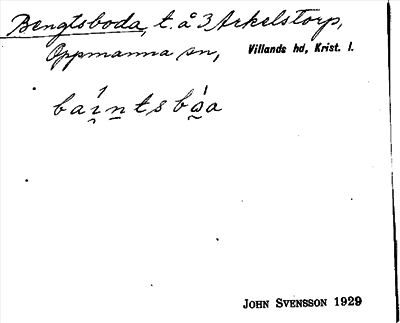 Bengtsboda, t. å 3 Arkelstorp,
Oppmanna sn, Villands hd, Krist. l.
JOHN SVENSSON 1929